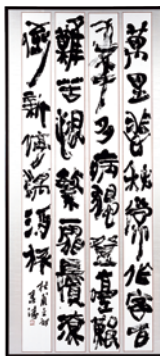 萬里悲秋常作客百
年多病獨登臺艱
難苦恨繁霜鬢潦
倒新停濁酒杯
杜甫